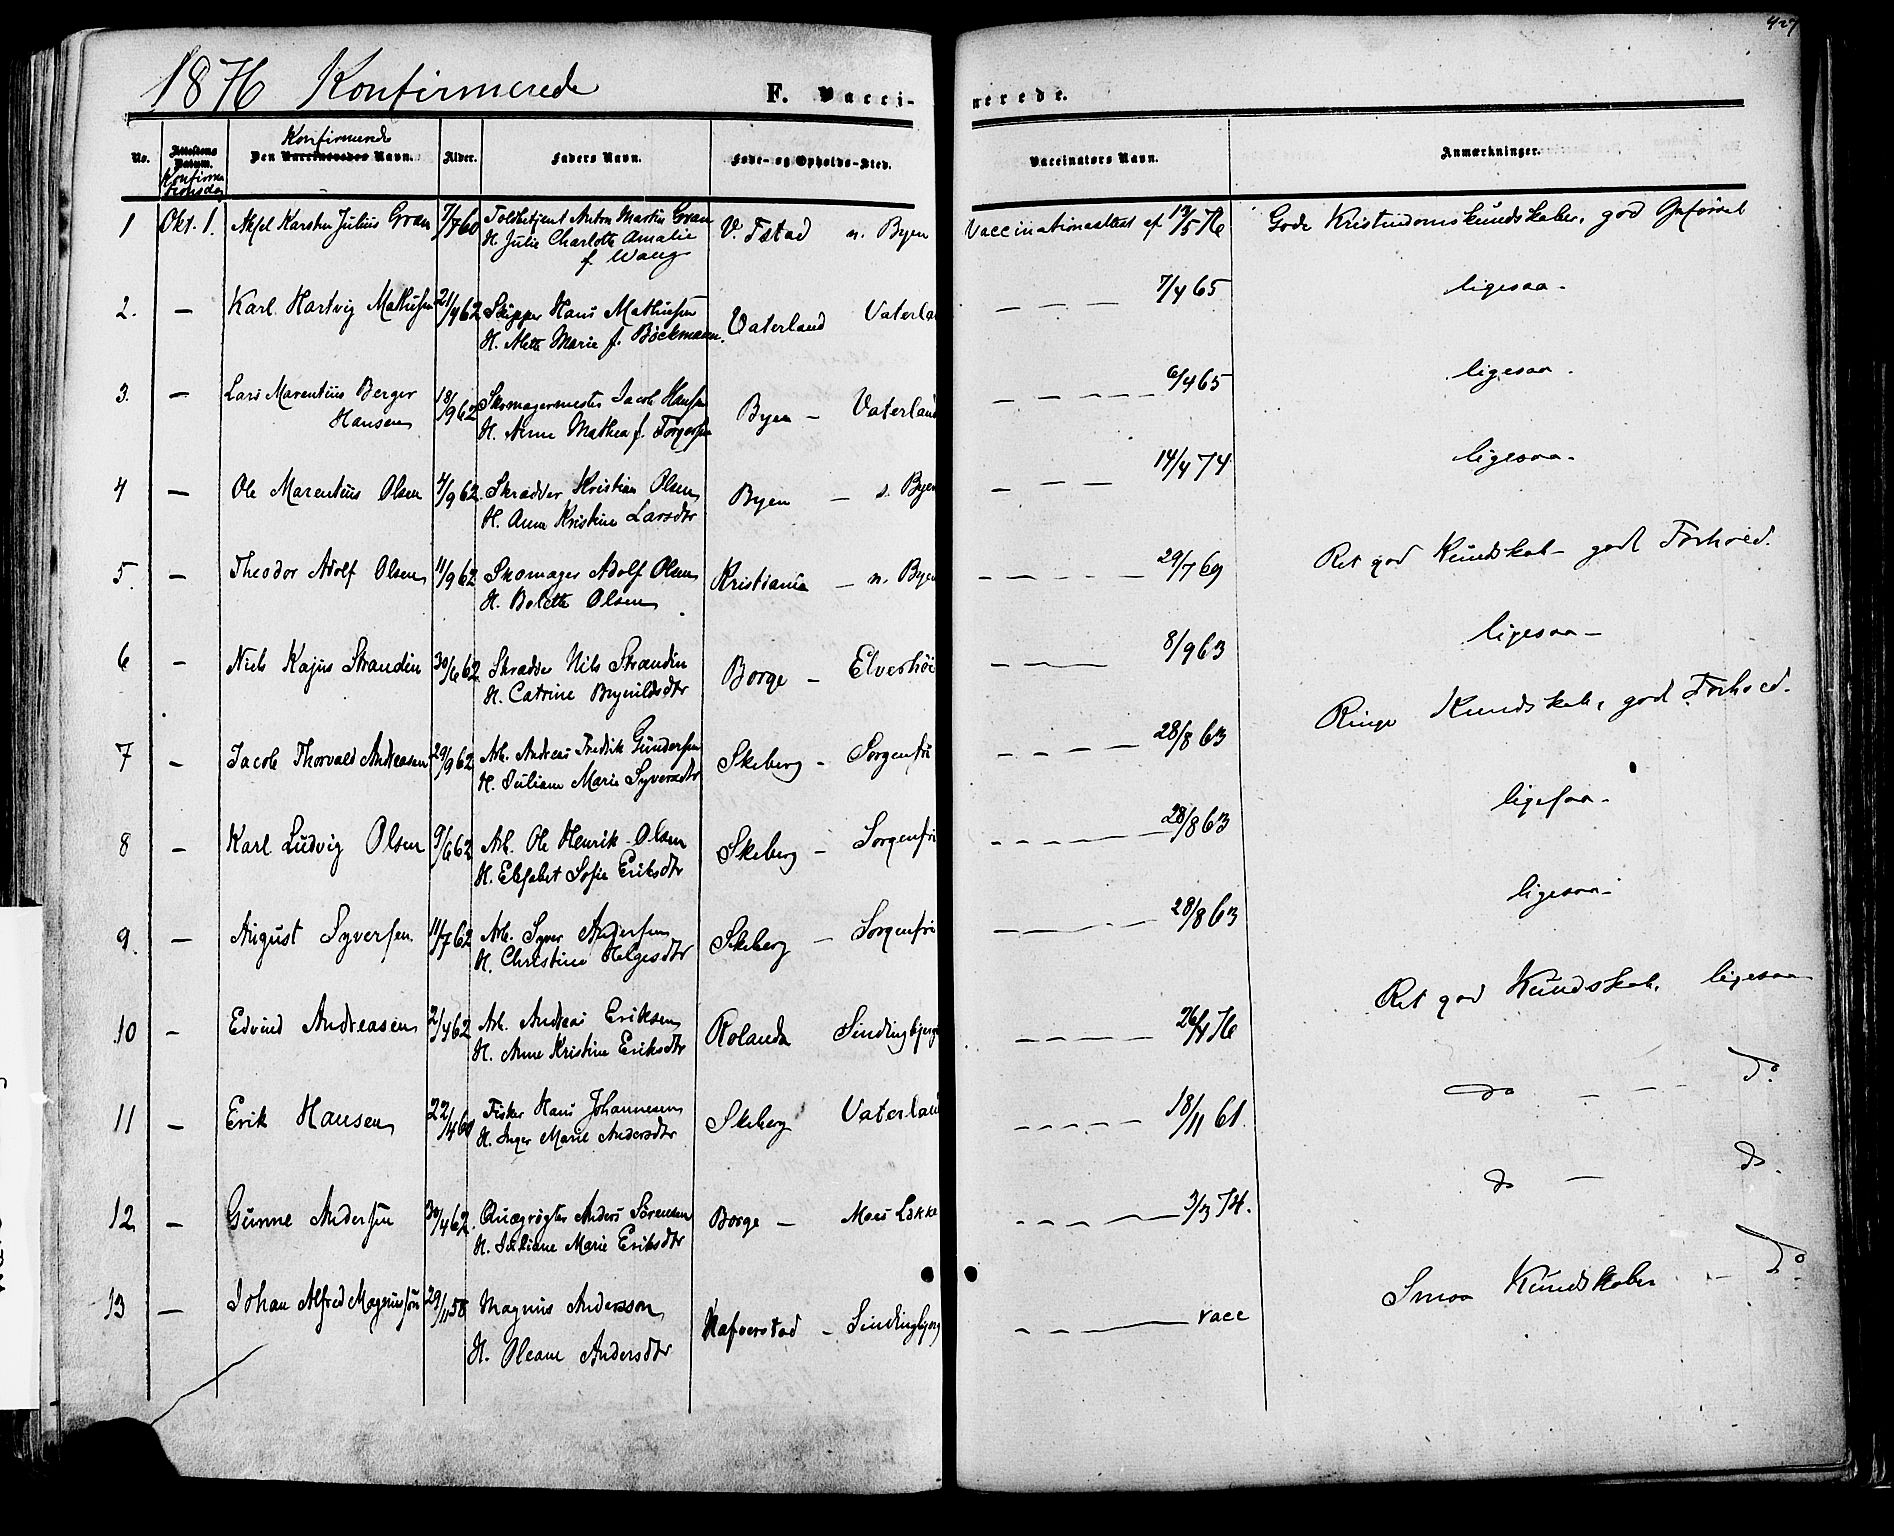 427
1876 Konfirmerede
F. Vacci-
nerede.
No.
Attestens Datum.
Konfirmationsdag
Konfirmende
Den Vaccineredes Navn.
Alder.
Faders Navn.
Føde- og Opholds-Sted.
Vaccinators Navn.
Anmærkninger.
1 Okt. 1. Aksel Karsten Julius Gran 7/7 60 Toldbetjent Anton Martin Gran V. Fstad n. Byen Vaccinationsattest af 19/5 76 Gode Kristendomskundskaber, god Opførsel
H. Julie Charlotte Amalie
f. Wang
2. — Karl Hartvig Mathisen 21/4 62 Skipper Hans Mathiesen Vaterland Vaterla — — — 7/4 65 ligesaa.
H. Mette Marie f. Böckmann.
3. — Lars Marentius Berger 18/9 62 Skomagermester Jacob Hansen Byen — Vaterland — — — 6/4 65 ligesaa.
Hansen H. Anne Mathea f. Torgersen
4 — Ole Marentius Olsen 4/9 62 Skradder Kristian Olsen Byen — s. Byen — — — 14/4 74 ligesaa.
H. Anne Kristine Larsdtr
5. — Theodor Adolf Olsen 11/9 62 Skomager Adolf Olsen Kristiania — n. Byen — — — 29/7 69 Ret god Kundskab — god Forhold.
H. Bolette Olsen
6 — Niels Kajus Strandin 30/6 62 Skradder Nils Strandin Borge — Elverhöi — — — 8/9 63 ligesaa —
H. Catrine Brynildsdtr
7 — Jacob Thorvald Andreasen 29/9 62 Arb. Andreas Fredrik Gundersen Skeberg — Sorgenfri — — — 28/8 63 Ringe Kundskab, god Forhold.
H. Juliane Marie Syversdtr
8 — Karl Ludvig Olsen 9/6 62 Arb. Ole Henrik Olsen Skeberg — Sorgenfri — — — 28/8 63 ligesaa.
H. Elisabet Sofie Eriksdtr
9. — August Syversen 11/7 62 Arb. Syver Andersen Skeberg — Sorgenfri — — — 28/8 63 ligesaa.
H. Christine Helgesdtr
10 — Edvind Andreasen 2/4 62 Arb. Andreas Eriksen Rolands Sindingbjerg — — — 26/4 76 Ret god Kundskab, ligesaa
H. Anne Kristine Eriksdtr
11 — Erik Hansen 22/4 60 Fisker Hans Johannesen Skeberg Vaterland — — — 18/11 61. do — — do.
H. Inger Marie Andersdtr
12 — Gunne Andersen 30/4 62 Quægrøgter Anders Sörensen Borge — Moss Løkke — — — 3/3 74. do — do.
H. Juliane Marie Eriksdtr
13 — Johan Alfred Magnussön 29/11 58 Magnus Andersson Hafverstad — Sindingbjerg — — — vacc Smaa Kundskaber — do.
H. Oleane Andersdtr